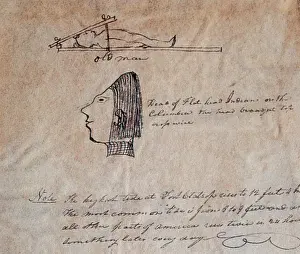 old man
Head of Flat head Indians on the
Columbia
Note The highest tide at Fort Clatsop rises to 12 feet
The most common tide is from 8 to 9 feet and
all other parts of america rises twice in 24 hou
Something later every day